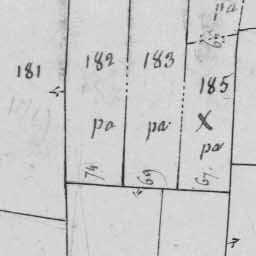 pa
181
182
183
185
pa
pa
X
pa
74
69
67